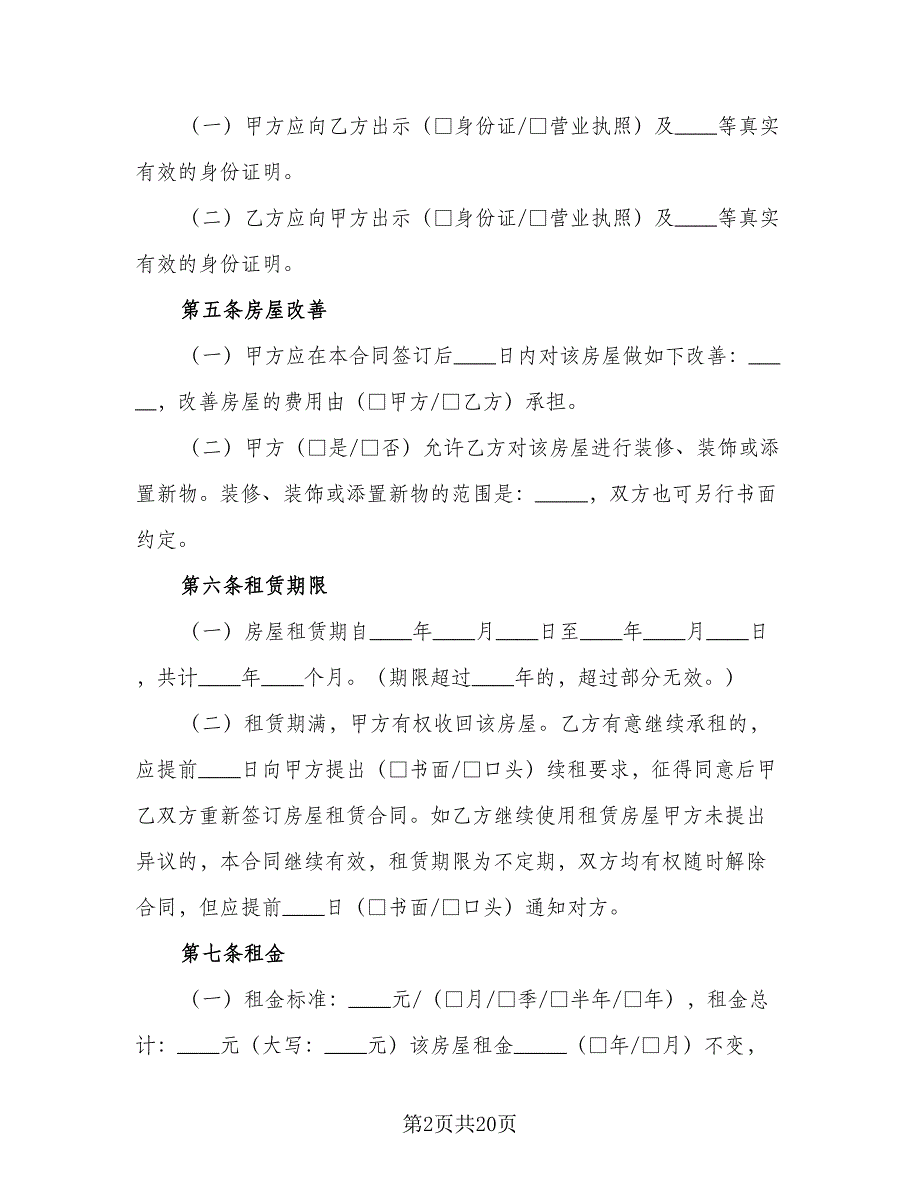 （一）甲方应向乙方出示（□身份证/□营业执照）及____等真实
有效的身份证明。
（二）乙方应向甲方出示（□身份证/□营业执照）及____等真实
有效的身份证明。
第五条房屋改善
（一）甲方应在本合同签订后____日内对该房屋做如下改善：___
__，改善房屋的费用由（□甲方/□乙方）承担。
（二）甲方（□是/□否）允许乙方对该房屋进行装修、装饰或添
置新物。装修、装饰或添置新物的范围是：_____，双方也可另行书面
约定。
第六条租赁期限
（一）房屋租赁期自____年____月____日至____年____月____日
，共计____年____个月。（期限超过____年的，超过部分无效。）
（二）租赁期满，甲方有权收回该房屋。乙方有意继续承租的，
应提前____日向甲方提出（□书面/□口头）续租要求，征得同意后甲
乙双方重新签订房屋租赁合同。如乙方继续使用租赁房屋甲方未提出
异议的，本合同继续有效，租赁期限为不定期，双方均有权随时解除
合同，但应提前____日（□书面/□口头）通知对方。
第七条租金
（一）租金标准：____元/（□月/□季/□半年/□年），租金总
计：____元（大写：____元）该房屋租金_____（□年/□月）不变，
第2页共20页